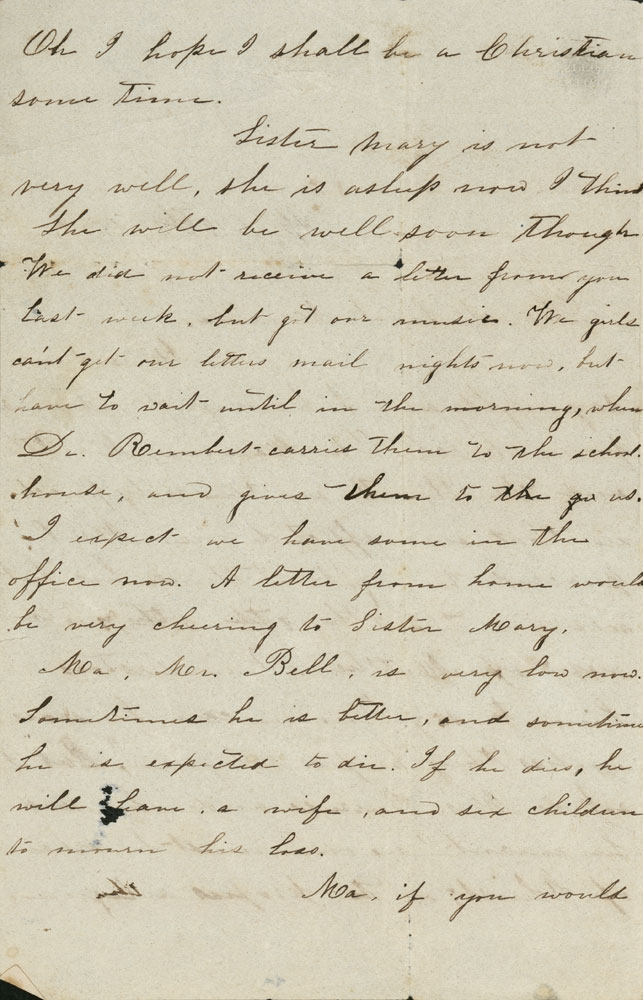 Oh I hope I shall be a Christian
some time.
Sister Mary is not
very well, she is asleep now I think
She will be well soon though
We did not receive a letter from you
last week, but got our music. We girls
can't get our letters mail nights now, but
have to wait until in the morning, when
Dr. Rembert carries them to the school
house, and gives them to the us.
I expect we have some in the
office now. A letter from home would
be very cheering to Sister Mary.
Ma, Mr. Bell, is very low now.
Sometimes he is better, and sometime
he is expected to die. If he dies, he
will leave, a wife, and six children
to mourn his loss.
Ma, if you would